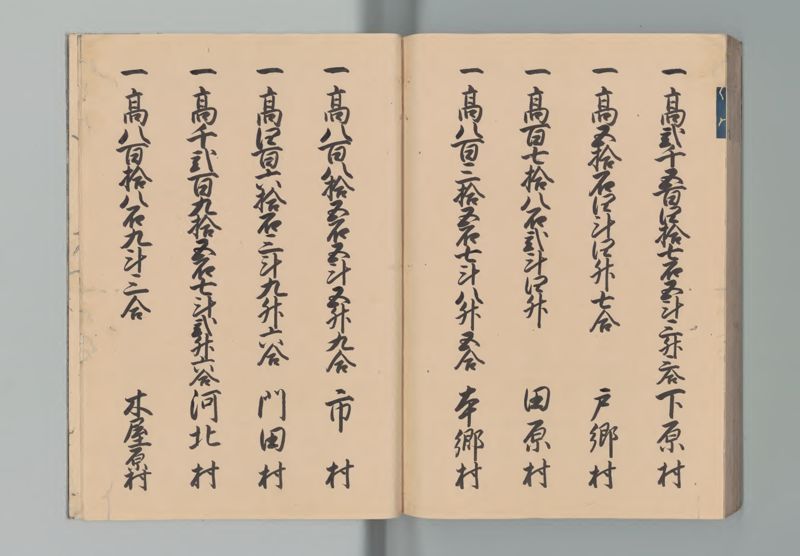 一高弐千五百四拾七石五斗三升六合下原村
一高五拾石四斗四升七合 戸郷村
一高百七拾八石弐斗四升 田原村
一高八百三拾五石七斗八升五合 本郷村
一高八百八拾五石五斗五升九合 市村
一高四百六拾石三斗九升六合 門田村
一高千弐百九拾五石七斗弐升六合河北村
一高八百拾八石九斗三合 木屋原村